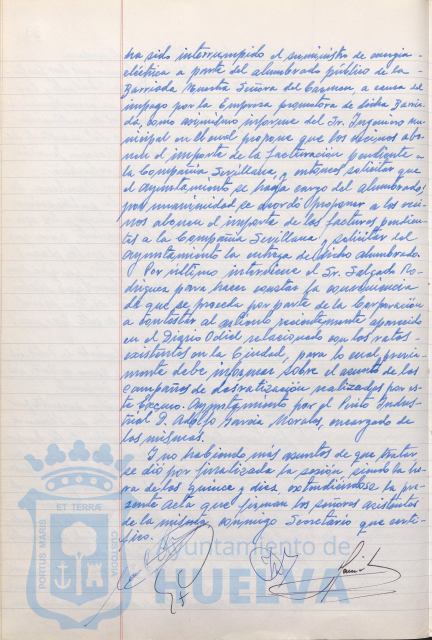 ha sido interrumpido el suministro de energía
eléctrica a parte del alumbrado público de la
Barriada Nuestra Señora del Carmen, a causa del
impago por la Empresa promotora de dicha Barria-
da, como asimismo informe del Sr. Ingeniero mu-
nicipal en el cual propone que los vecinos abo-
nen el importe de la facturación pendiente a
la Compañía Sevillana, y entonces solicitar que
el Ayuntamiento se haga cargo del alumbrado;
por unanimidad se acordó proponer a los veci-
nos abonen el importe de las facturas pendien-
tes a la Compañía Sevillana y solicitar del
Ayuntamiento la entrega de dicho alumbrado.
Por último interviene el Sr. Salgado Ro-
dríguez para hacer constar la conveniencia
de que se proceda por parte de la Corporación
a contestar al artículo recientemente aparecido
en el Diario Odiel relacionado con las ratas
existentes en la Ciudad, para lo cual previa-
mente debe informar sobre el asunto de las
campañas de desratización realizadas por es-
te Excmo. Ayuntamiento por el Perito Indus-
trial D. Adolfo García Morales, encargado de
las mismas.
Y no habiendo más asuntos de que tratar
se dió por finalizada la sesión, siendo la ho-
ra de las quince y diez, extendiéndose la pre-
sente acta que firman los señores asistentes
de la misma, conmigo Secretario que certi-
fico.
PORTUS MARIS ET TERRÆ CUSTODIA
Ayuntamiento de
HUELVA